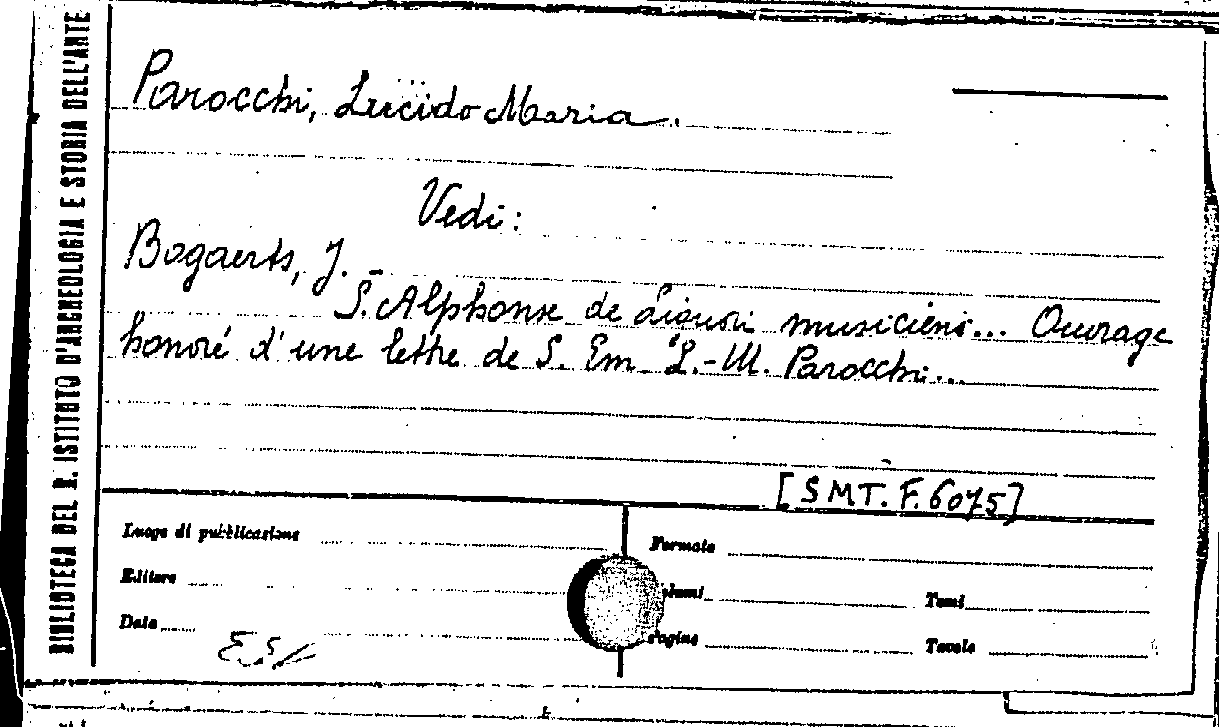 BIBLIOTECA DEL R. ISTITUTO D'ARCHEOLOGIA E STORIA DELL'ARTE
Parocchi, Lucido Maria.
Vedi:
Bogaerts, J. -
S. Alphonse de Liguori musicien... Ouvrage
honoré d'une lettre de S. Em. L.-M. Parocchi...
[SMT. F. 6075]
Luogo di pubblicazione
Formato
Editore
Volumi
Tomi
Data
Pagine
Tavole